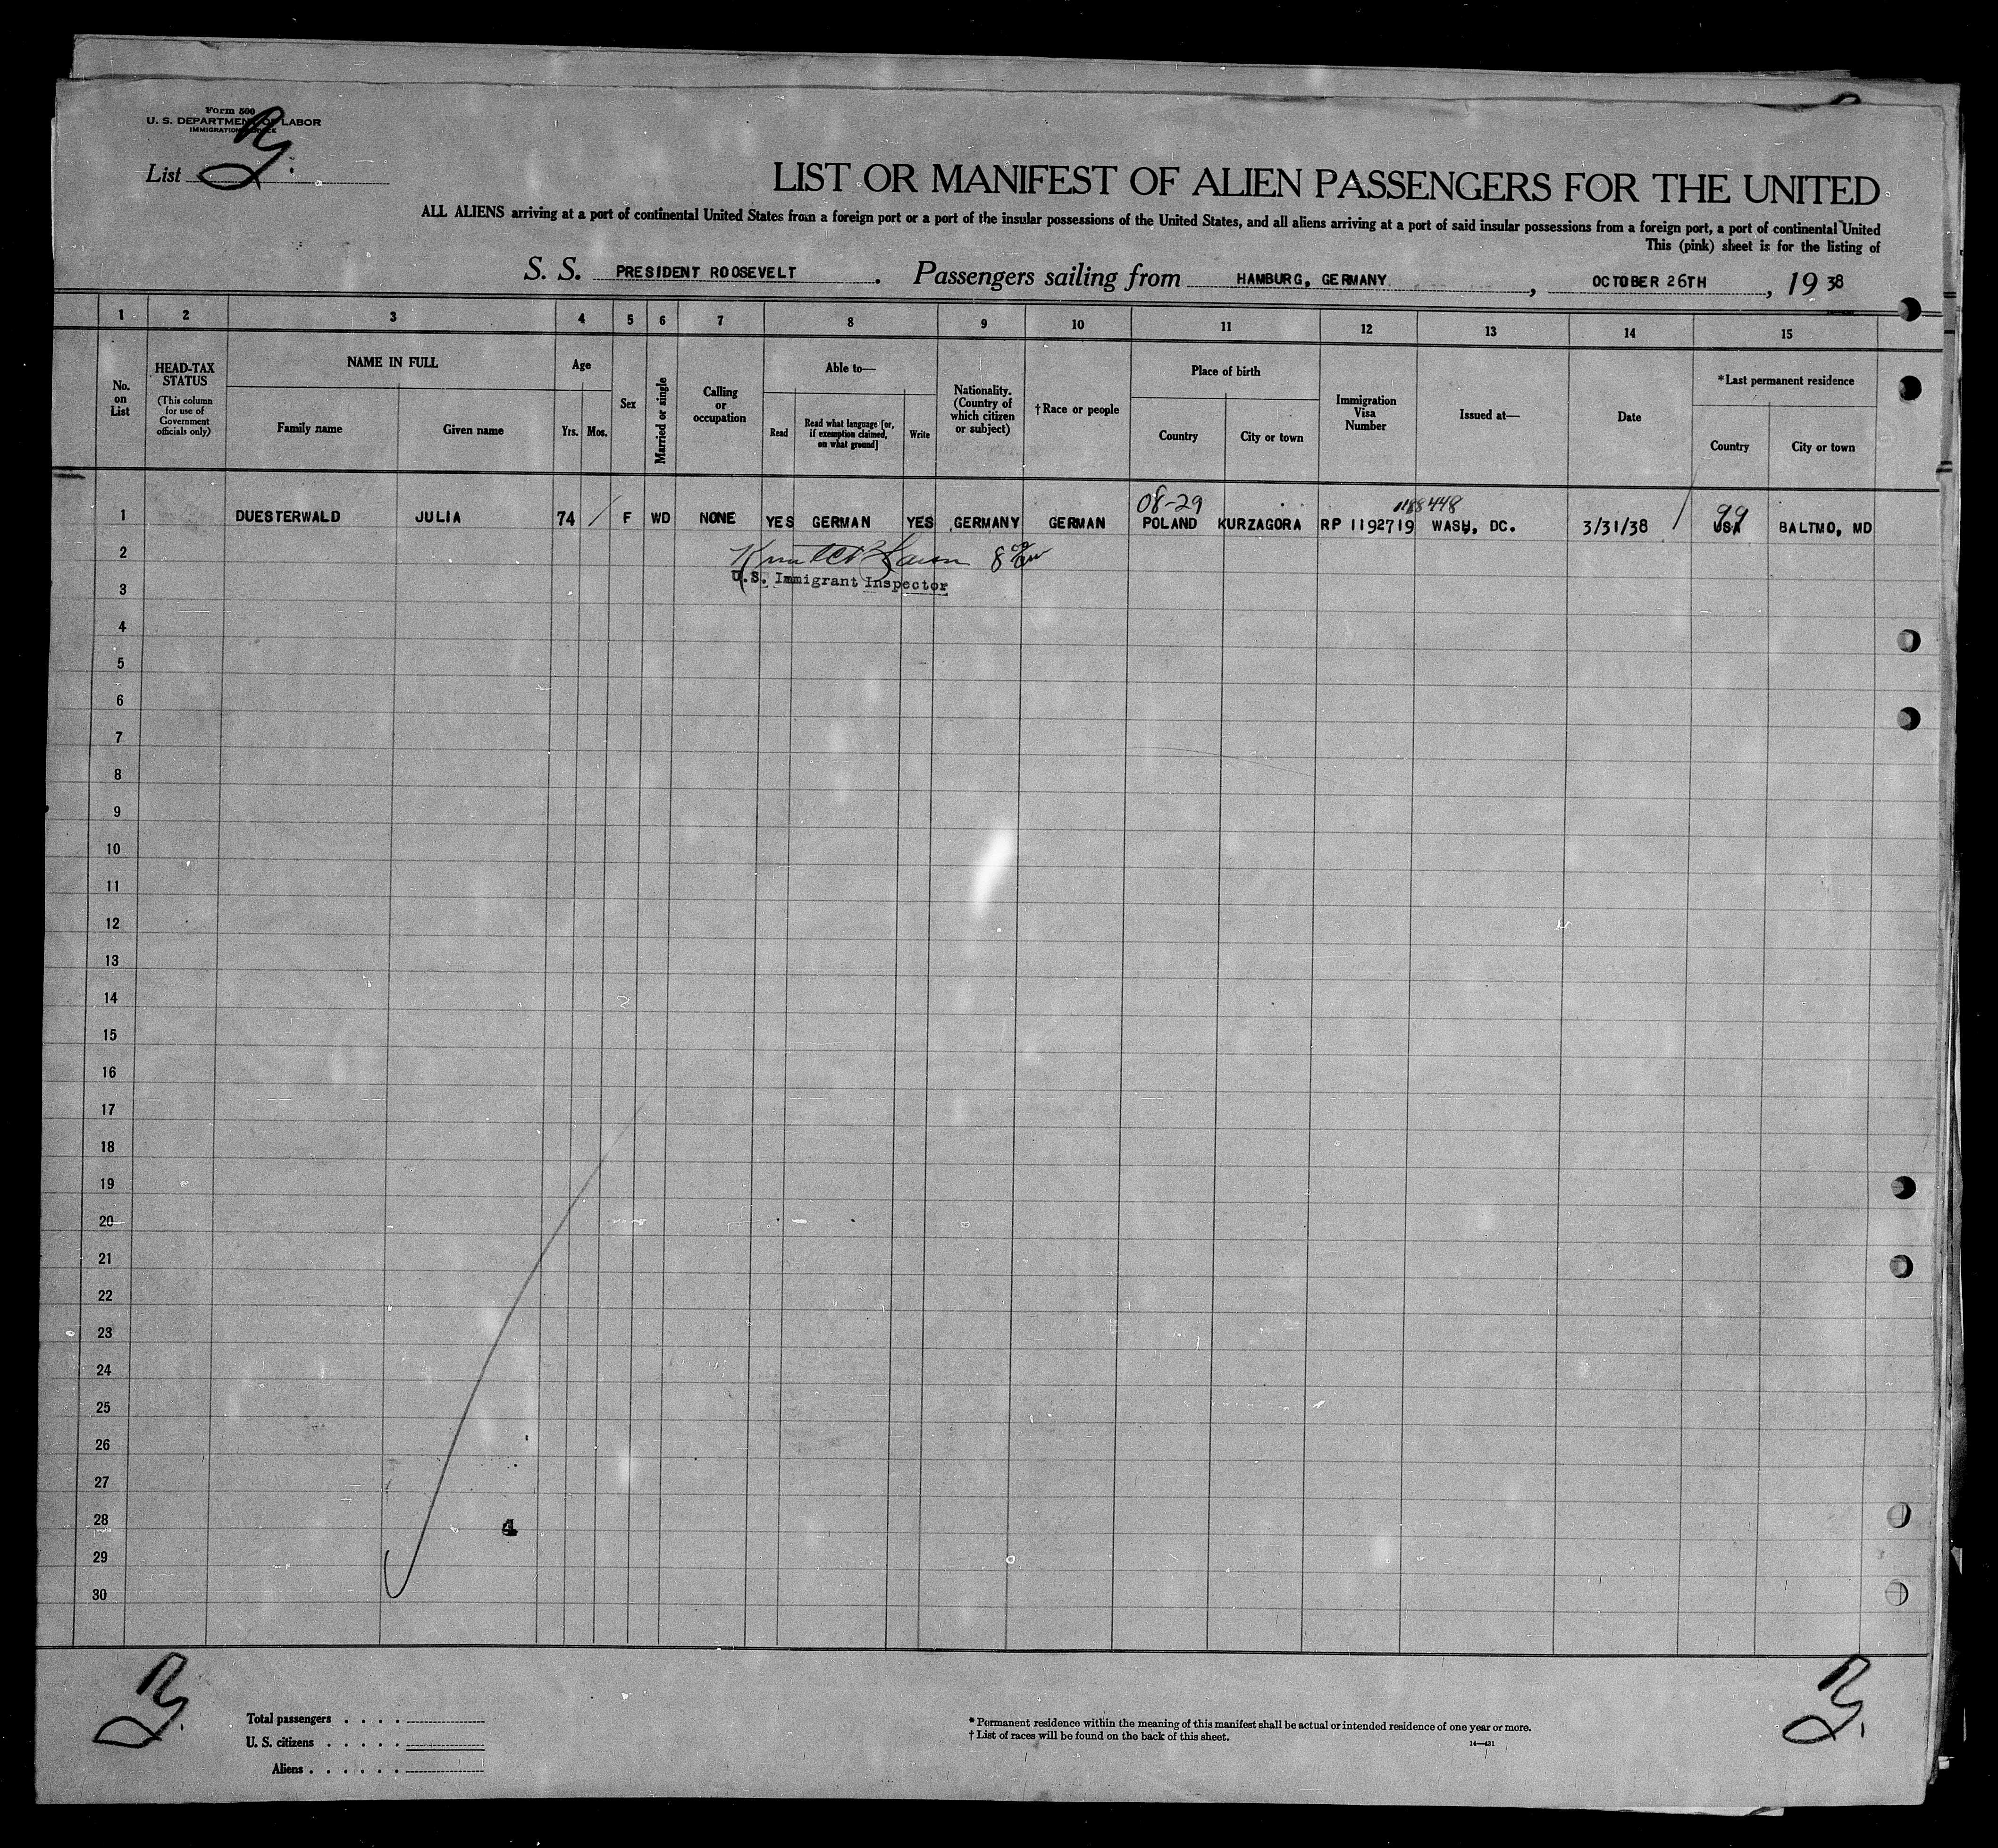 Form 500
U. S. DEPARTMENT OF LABOR
IMMIGRATION SERVICE
List
LIST OR MANIFEST OF ALIEN PASSENGERS FOR THE UNITED
ALL ALIENS arriving at a port of continental United States from a foreign port or a port of the insular possessions of the United States, and all aliens arriving at a port of said insular possessions from a foreign port, a port of continental United
This (pink) sheet is for the listing of
S. S. PRESIDENT ROOSEVELT. Passengers sailing from HAMBURG, GERMANY, OCTOBER 26TH, 19 38
1 2 3 4 5 6 7 8 9 10 11 12 13 14 15
No. on List
HEAD-TAX STATUS
(This column for use of Government officials only)
NAME IN FULL
Family name
Given name
Age
Yrs.
Mos.
Sex
Married or single
Calling or occupation
Able to—
Read
Read what language [or, if exemption claimed, on what ground]
Write
Nationality. (Country of which citizen or subject)
†Race or people
Place of birth
Country
City or town
Immigration Visa Number
Issued at—
Date
*Last permanent residence
Country
City or town
08-29 1188448 99
1 DUESTERWALD JULIA 74 / F WD NONE YES GERMAN YES GERMANY GERMAN POLAND KURZAGORA RP 1192719 WASH, DC. 3/31/38 / USA BALTMO, MD
2
U.S. Immigrant Inspector
3
4
5
6
7
8
9
10
11
12
13
14
15
16
17
18
19
20
21
22
23
24
25
26
27
28
29
30
4
Total passengers . . . .
U. S. citizens . . . . .
Aliens . . . . . .
* Permanent residence within the meaning of this manifest shall be actual or intended residence of one year or more.
† List of races will be found on the back of this sheet.
14—431